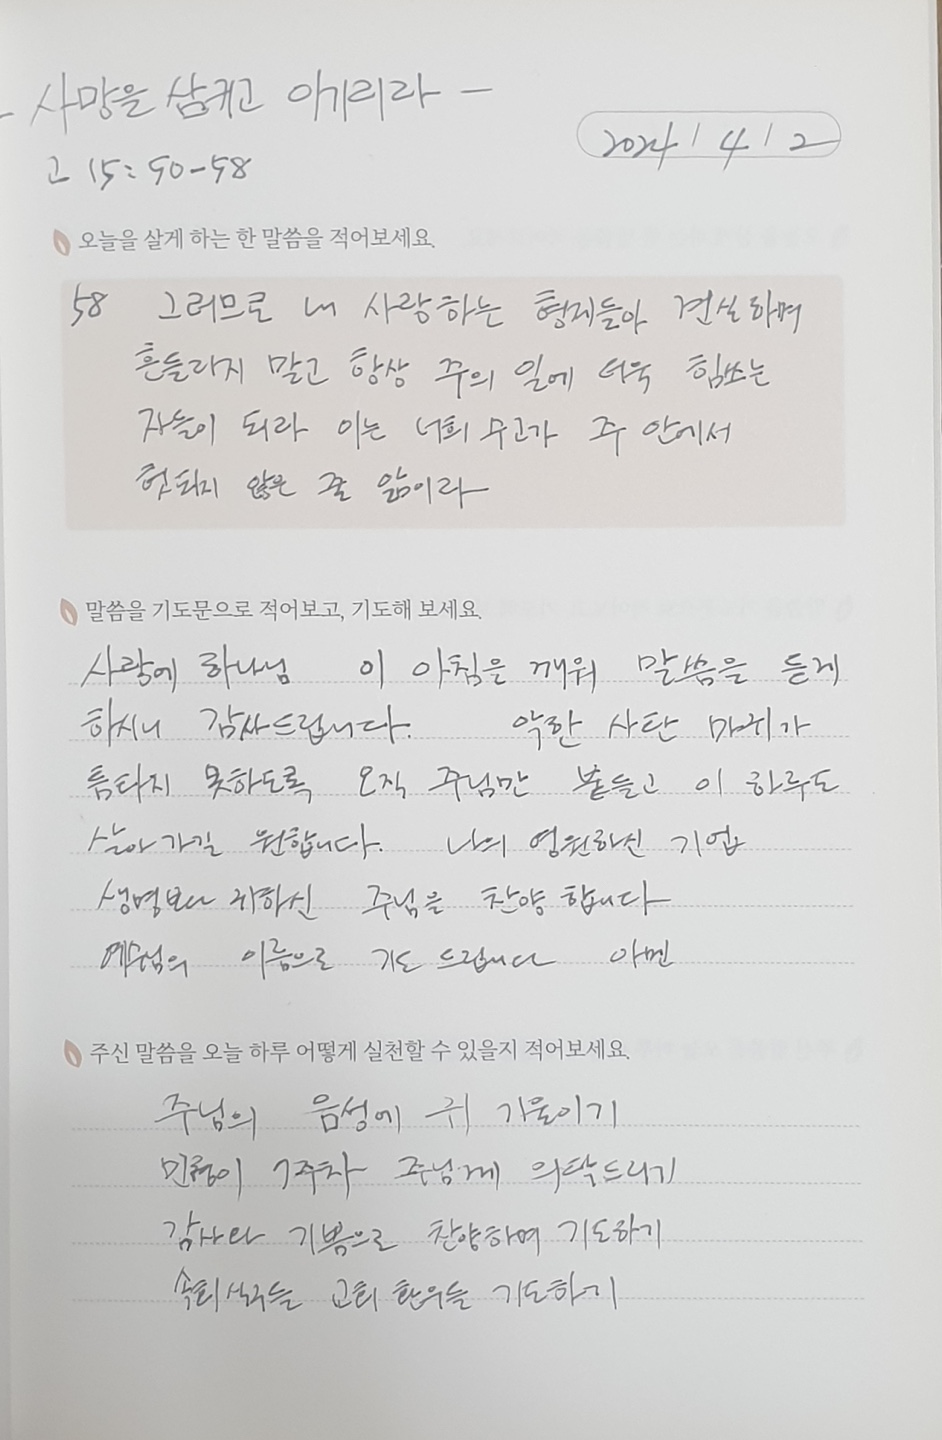 - 사망을 삼키고 이기리라 -
2024 / 4 / 2
고 15: 50-58
오늘을 살게 하는 한 말씀을 적어보세요.
58 그러므로 내 사랑하는 형제들아 견실하며
흔들리지 말고 항상 주의 일에 더욱 힘쓰는
자들이 되라 이는 너희 수고가 주 안에서
헛되지 않은 줄 앎이라
말씀을 기도문으로 적어보고, 기도해 보세요.
사랑에 하나님 이 아침을 깨워 말씀을 듣게
하시니 감사드립니다. 악한 사탄 마귀가
틈타지 못하도록 오직 주님만 붙들고 이 하루도
살아가길 원합니다. 나의 영원하신 기업
생명보다 귀하신 주님을 찬양합니다
예수님의 이름으로 기도 드립니다 아멘
주신 말씀을 오늘 하루 어떻게 실천할 수 있을지 적어보세요.
주님의 음성에 귀 기울이기
7주차 주님께 의탁드리기
감사와 기쁨으로 찬양하며 기도하기
속회식구들 교회 환우들 기도하기